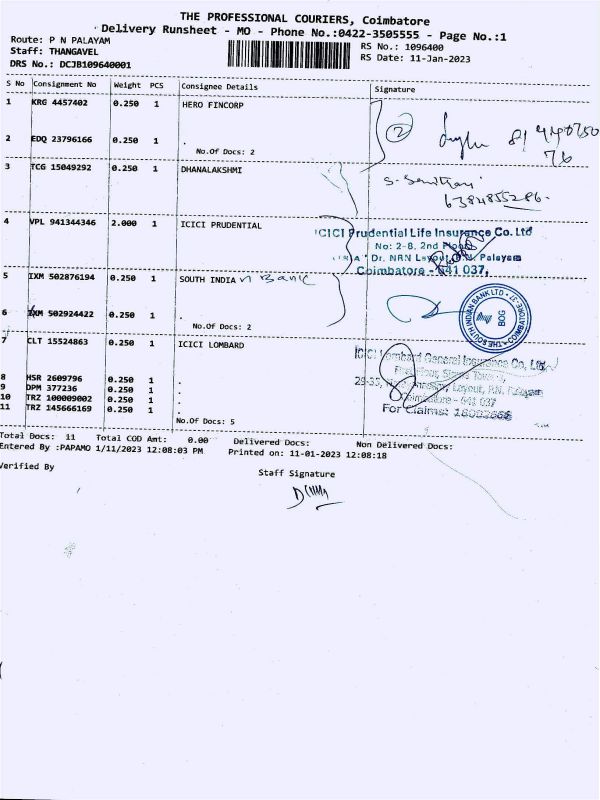 THE PROFESSIONAL COURIERS, Coimbatore
Delivery Runsheet - MO - Phone No.:0422-3505555 - Page No.:1
Route: P N PALAYAM
RS No.: 1096400
Staff: THANGAVEL
RS Date: 11-Jan-2023
DRS No.: DCJB109640001
S No Consignment No Weight PCS Consignee Details Signature
1 KRG 4457402 0.250 1 HERO FINCORP
2
2 EDQ 23796166 0.250 1 .
No.Of Docs: 2
76
3 TCG 15049292 0.250 1 DHANALAKSHMI
6384855286.
4 VPL 941344346 2.000 1 ICICI PRUDENTIAL
ICICI Prudential Life Insurance Co. Ltd
No: 2-8, 2nd Floor
Dr. NRN Layout, P.N. Palayam
Coimbatore - 641 037,
5 IXM 502876194 0.250 1 SOUTH INDIA n Bank
THE SOUTH INDIAN BANK LTD COIMBATORE-37
BOG
6 IXM 502924422 0.250 1 .
No.Of Docs: 2
7 CLT 15524863 0.250 1 ICICI LOMBARD
ICICI Lombard General Insurance Co, Ltd.
Layout, P.N. Palayam
Coimbatore - 641 037
8 HSR 2609796 0.250 1 .
9 DPM 377236 0.250 1 .
10 TRZ 100009002 0.250 1 .
For Claims:
11 TRZ 145666169 0.250 1 .
No.Of Docs: 5
Total Docs: 11 Total COD Amt: 0.00 Delivered Docs: Non Delivered Docs:
Entered By :PAPAMO 1/11/2023 12:08:03 PM Printed on: 11-01-2023 12:08:18
Verified By
Staff Signature